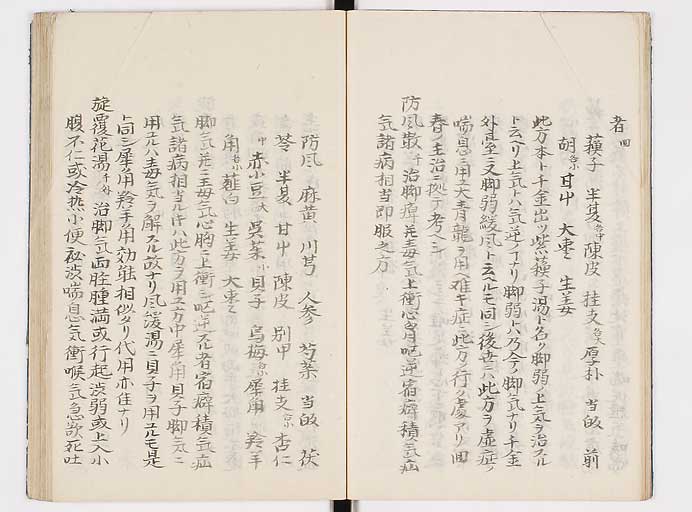 者四
蘓子 半夏各中 陳皮 桂支各大 厚朴 当皈 前
胡各小 甘艸 大棗 生姜
此方本ト千金ニ出ツ紫蘓子湯ト名ク脚弱上気ヲ治スル
ト云ヘリ上気トハ気逆ノヿナリ脚弱トハ乃今ノ脚気ナリ千金
外台ニ又脚弱緩風ト云ヘルモ同シ後世ニハ此方ヲ虚症ノ
喘息ニ用ユ大青龍ヲ用難キ症ニ此方ノ行ク處アリ回
春ノ主治ニ拠テ考ヘシ
防風散千 治脚痺并毒気上衝心胸呕逆宿癖積気疝
気諸病相当即服之方
防風 麻黄 川芎 人参 芍薬 当皈 茯
苓 半夏 甘艸 陳皮 別甲 桂支各小 杏仁
中 赤小豆大 呉茱小 貝子 烏梅 犀角 羚羊
角各小 薤白 生姜 大棗
脚気并ニ毒気心胸ニ上衝シ呕逆スル者宿癖積気疝
気諸病相当ル片ハ此方ヲ用ユ方中犀角貝子脚気ニ
用ユルハ毒気ヲ解スル故ナリ風緩湯ニ貝子ヲ用ユルモ是
ト同シ犀角羚羊角効能相似タリ代用亦佳ナリ
旋覆花湯千外 治脚気面䏶腫満或行起渋弱或上入小
腹不仁或冷热小便秘渋喘息気衝喉気急欲死吐